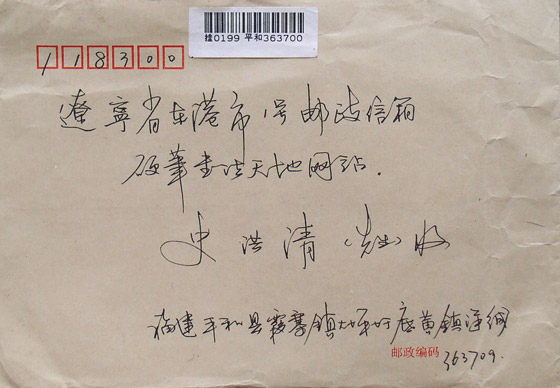 挂0199 平和363700
118300
辽宁省东港市1号邮政信箱
硬筆书法天地网站.
史洪清(先生)收
福建平和县霞寨镇 底黄镇
邮政编码
363709.